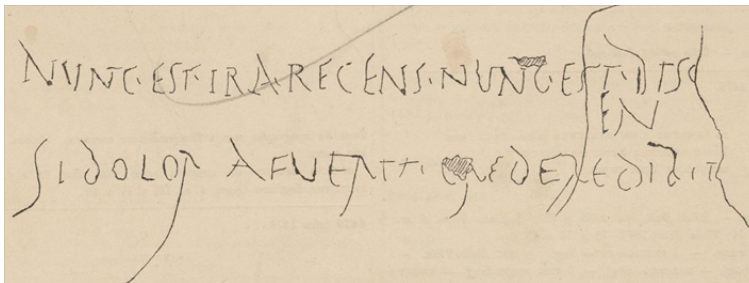 NUNC·EST·IRA·RECENS·NUNC·EST·DISC
EN
SI DOLOR AFUERIT·CREDE REDIBIT